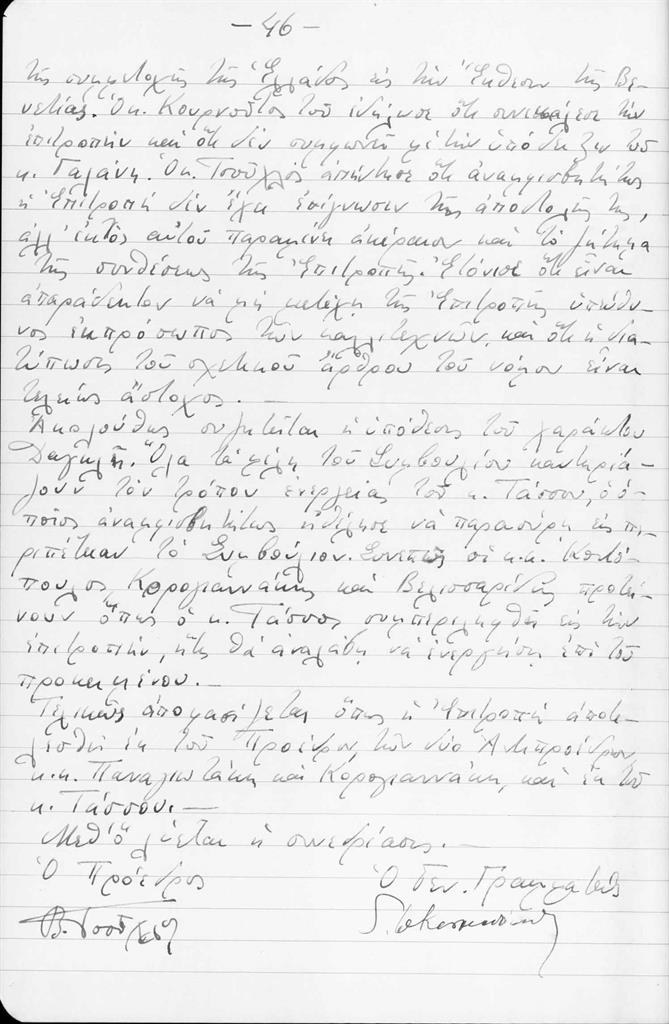 — 46 —
τῆς συμμετοχῆς τῆς Ἑλλάδος εἰς τὴν Ἔκθεσιν τῆς Βε-
νετίας. Ὁ κ. Κουρνοῦτος τοῦ ἐδήλωσε ὅτι συνεκάλεσε τὴν
ἐπιτροπὴν καὶ ὅτι δὲν συμφωνεῖ μὲ τὴν ὑπόδειξιν τοῦ
κ. Γαλάνη. Ὁ κ. Τσοῦχλος ἀπήντησε ὅτι ἀναμφισβητήτως
ἡ Ἐπιτροπὴ δὲν ἔχει ἐπίγνωσιν τῆς ἀποστολῆς της,
ἀλλ' ἐκτὸς αὐτοῦ παραμένει ἀκέραιον καὶ τὸ ζήτημα
τῆς συνθέσεως τῆς Ἐπιτροπῆς. Ἐτόνισε ὅτι εἶναι
ἀπαράδεκτον νὰ μὴ μετέχῃ τῆς Ἐπιτροπῆς ὑπεύθυ-
νος ἐκπρόσωπος τῶν καλλιτεχνῶν, καὶ ὅτι ἡ δια-
τύπωσις τοῦ σχετικοῦ ἄρθρου τοῦ νόμου εἶναι
τελείως ἄστοχος. —
Ἀκολούθως συζητεῖται ἡ ὑπόθεσις τοῦ χαράκτου
Δαγκλῆ. Ὅλα τὰ μέλη τοῦ Συμβουλίου καυτηριά-
ζουν τὸν τρόπον ἐνεργείας τοῦ κ. Τάσσου, ὁ ὁ-
ποῖος ἀναμφισβητήτως ἠθέλησε νὰ παρασύρῃ εἰς πε-
ριπέτειαν τὸ Συμβούλιον. Συνεπῶς οἱ κ.κ. Κωτσό-
πουλος, Κορογιαννάκης καὶ Βελισσαρίδης προτεί-
νουν ὅπως ὁ κ. Τάσσος συμπεριληφθῇ εἰς τὴν
ἐπιτροπήν, ἥτις θὰ ἀναλάβῃ νὰ ἐνεργήσῃ ἐπὶ τοῦ
προκειμένου. —
Τελικῶς ἀποφασίζεται ὅπως ἡ Ἐπιτροπὴ ἀποτε-
λεσθῇ ἐκ τοῦ Προέδρου, τῶν δύο Ἀντιπροέδρων
κ.κ. Παναγιωτάκη καὶ Κορογιαννάκη, καὶ ἐκ τοῦ
κ. Τάσσου. —
Μεθ' ὃ λύεται ἡ συνεδρίασις. —
Ὁ Πρόεδρος
Ὁ Γεν. Γραμματεὺς